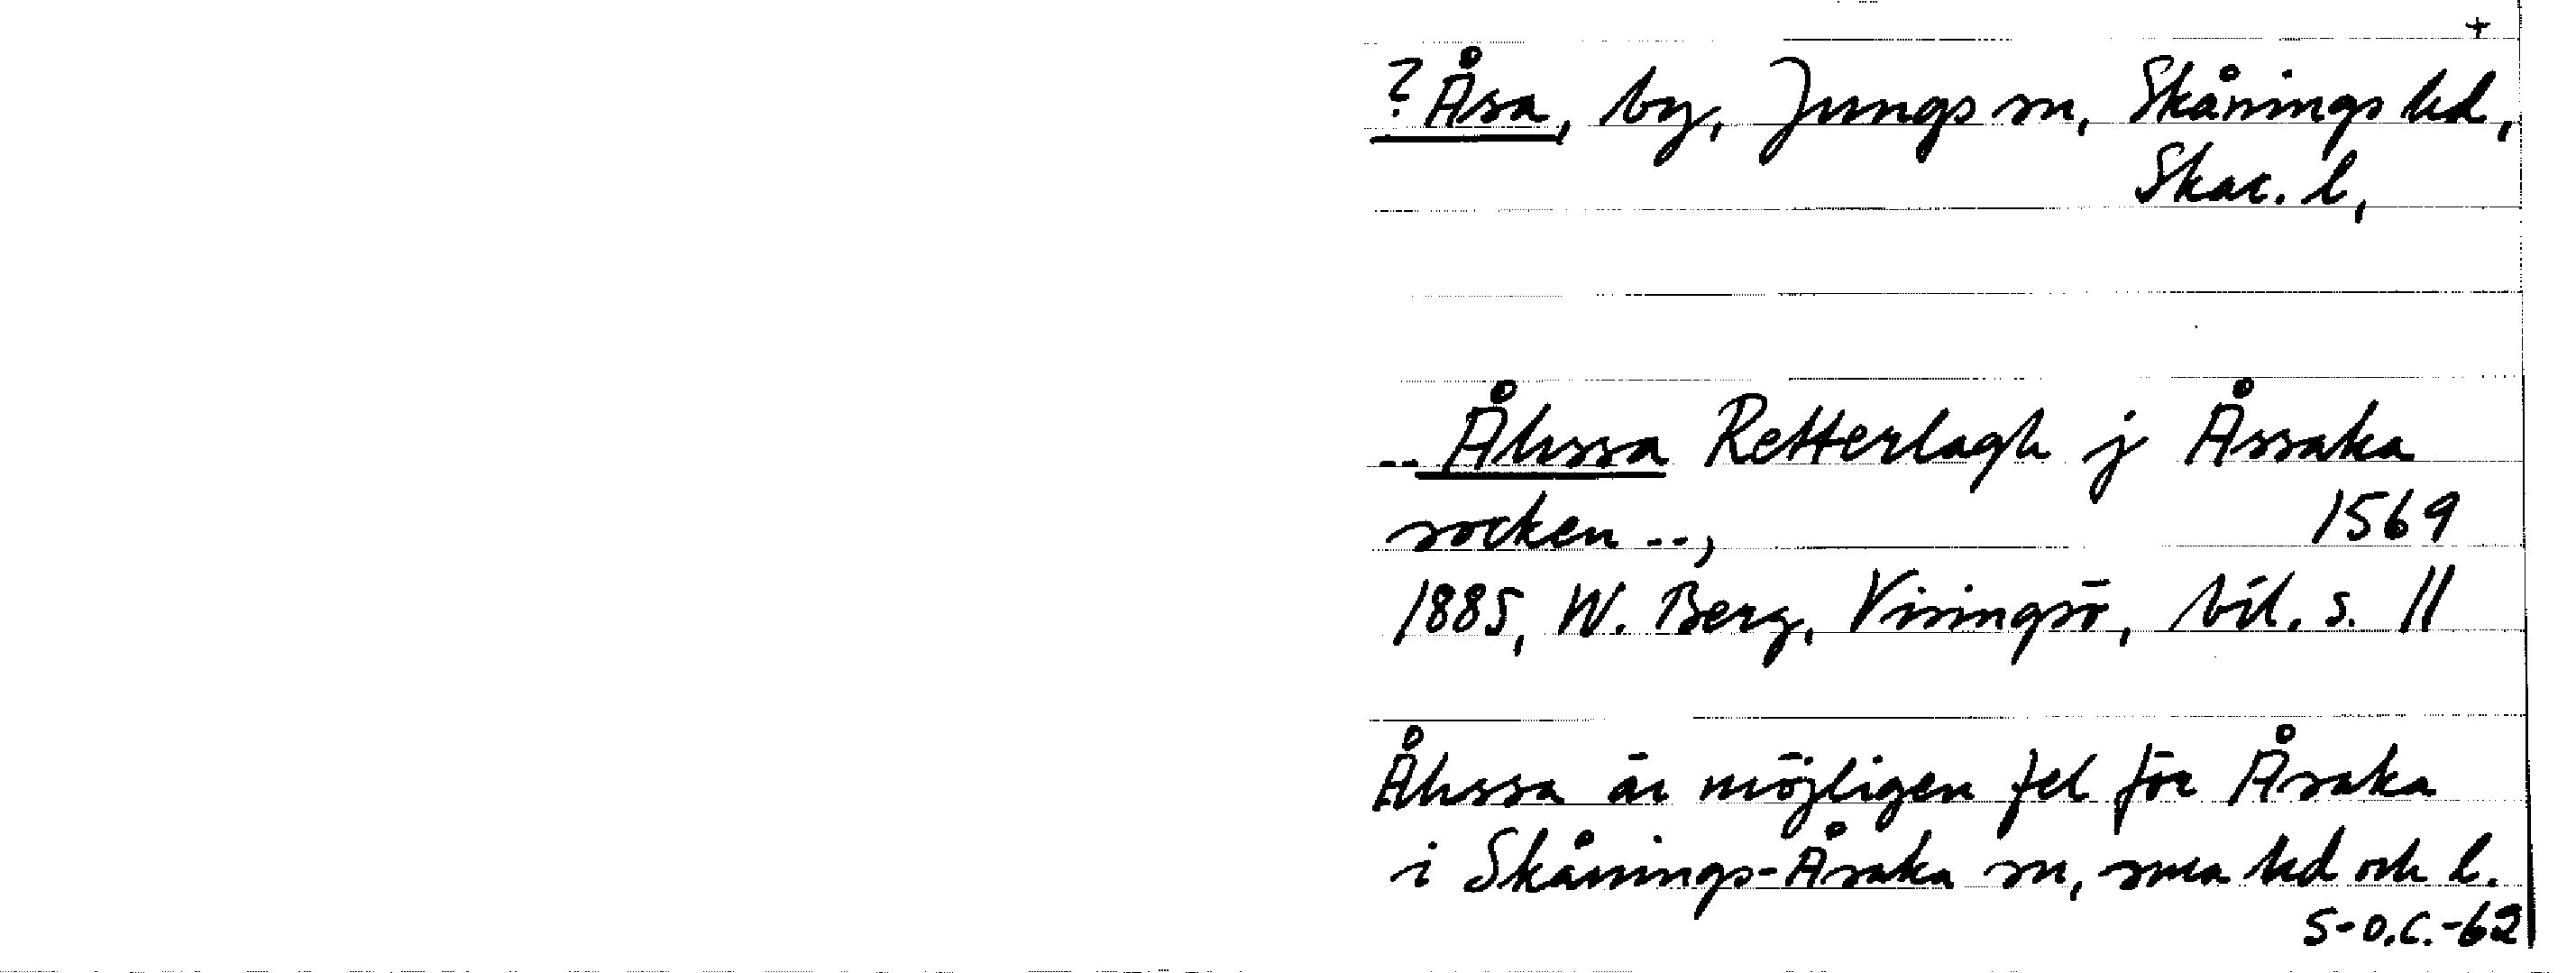 +
? Åsa, by, Jungs sn, Skånings hd,
Skar. l,
-- Åhssa Retterlagh j Åssaka
socken --, 1569
1885, W. Berg, Visingsö, bil. s. 11
Åhssa är möjligen fel för Åsaka
i Skånings-Åsaka sn, sma hd och l.
S-O.C.-62